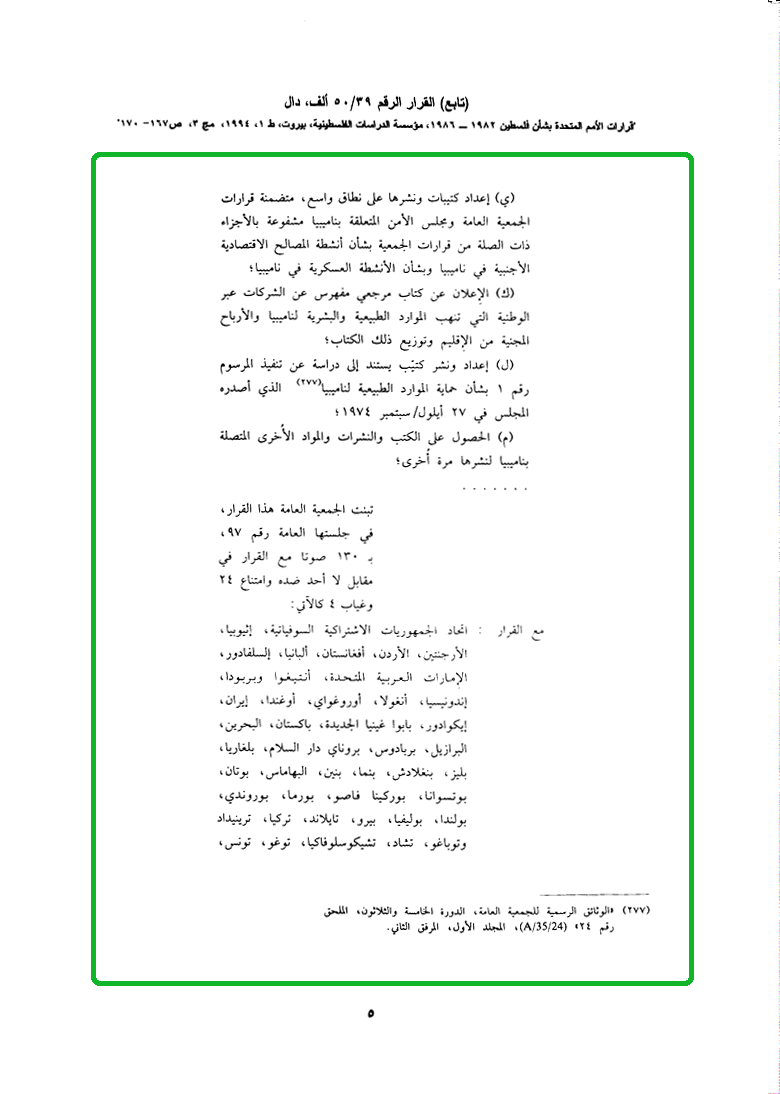 (تابع) القرار الرقم ٥٠/٣٩ ألف، دال
"قرارات الأمم المتحدة بشأن فلسطين ١٩٨٢ – ١٩٨٦، مؤسسة الدراسات الفلسطينية، بيروت، ط ١، ١٩٩٤، مج ٣، ص١٦٧- ١٧٠"
(ي) إعداد كتيبات ونشرها على نطاق واسع، متضمنة قرارات
الجمعية العامة ومجلس الأمن المتعلقة بناميبيا مشفوعة بالأجزاء
ذات الصلة من قرارات الجمعية بشأن أنشطة المصالح الاقتصادية
الأجنبية في ناميبيا وبشأن الأنشطة العسكرية في ناميبيا؛
(ك) الإعلان عن كتاب مرجعي مفهرس عن الشركات عبر
الوطنية التي تنهب الموارد الطبيعية والبشرية لناميبيا والأرباح
المجنية من الإقليم وتوزيع ذلك الكتاب؛
(ل) إعداد ونشر كتيّب يستند إلى دراسة عن تنفيذ المرسوم
رقم ١ بشأن حماية الموارد الطبيعية لناميبيا(٢٧٧) الذي أصدره
المجلس في ٢٧ أيلول/سبتمبر ١٩٧٤؛
(م) الحصول على الكتب والنشرات والمواد الأُخرى المتصلة
بناميبيا لنشرها مرة أُخرى؛
. . . . . . .
تبنت الجمعية العامة هذا القرار،
في جلستها العامة رقم ٩٧،
بـ ١٣٠ صوتا مع القرار في
مقابل لا أحد ضده وامتناع ٢٤
وغياب ٤ كالآتي:
مع القرار : اتحاد الجمهوريات الاشتراكية السوفياتية، إثيوبيا،
الأرجنتين، الأردن، أفغانستان، ألبانيا، إلسلفادور،
الإمارات العربية المتحدة، أنتيغوا وبربودا،
إندونيسيا، أنغولا، أوروغواي، أوغندا، إيران،
إيكوادور، بابوا غينيا الجديدة، باكستان، البحرين،
البرازيل، بربادوس، بروناي دار السلام، بلغاريا،
بليز، بنغلادش، بنما، بنين، البهاماس، بوتان،
بوتسوانا، بوركينا فاصو، بورما، بوروندي،
بولندا، بوليفيا، بيرو، تايلاند، تركيا، ترينيداد
وتوباغو، تشاد، تشيكوسلوفاكيا، توغو، تونس،
(٢٧٧) «الوثائق الرسمية للجمعية العامة، الدورة الخامسة والثلاثون، الملحق
رقم ٢٤» (A/35/24)، المجلد الأول، المرفق الثاني.
٥